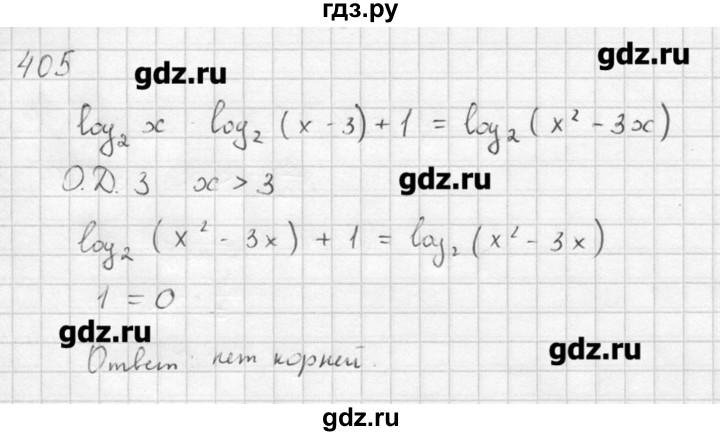 гдз.ру
405
gdz.ru
gdz.ru
log₂ x · log₂ (x - 3) + 1 = log₂ (x² - 3x)
О.Д.З x > 3
gdz.ru
log₂ (x² - 3x) + 1 = log₂ (x² - 3x)
1 = 0
gdz.ru
Ответ: нет корней.
gdz.ru
gdz.ru